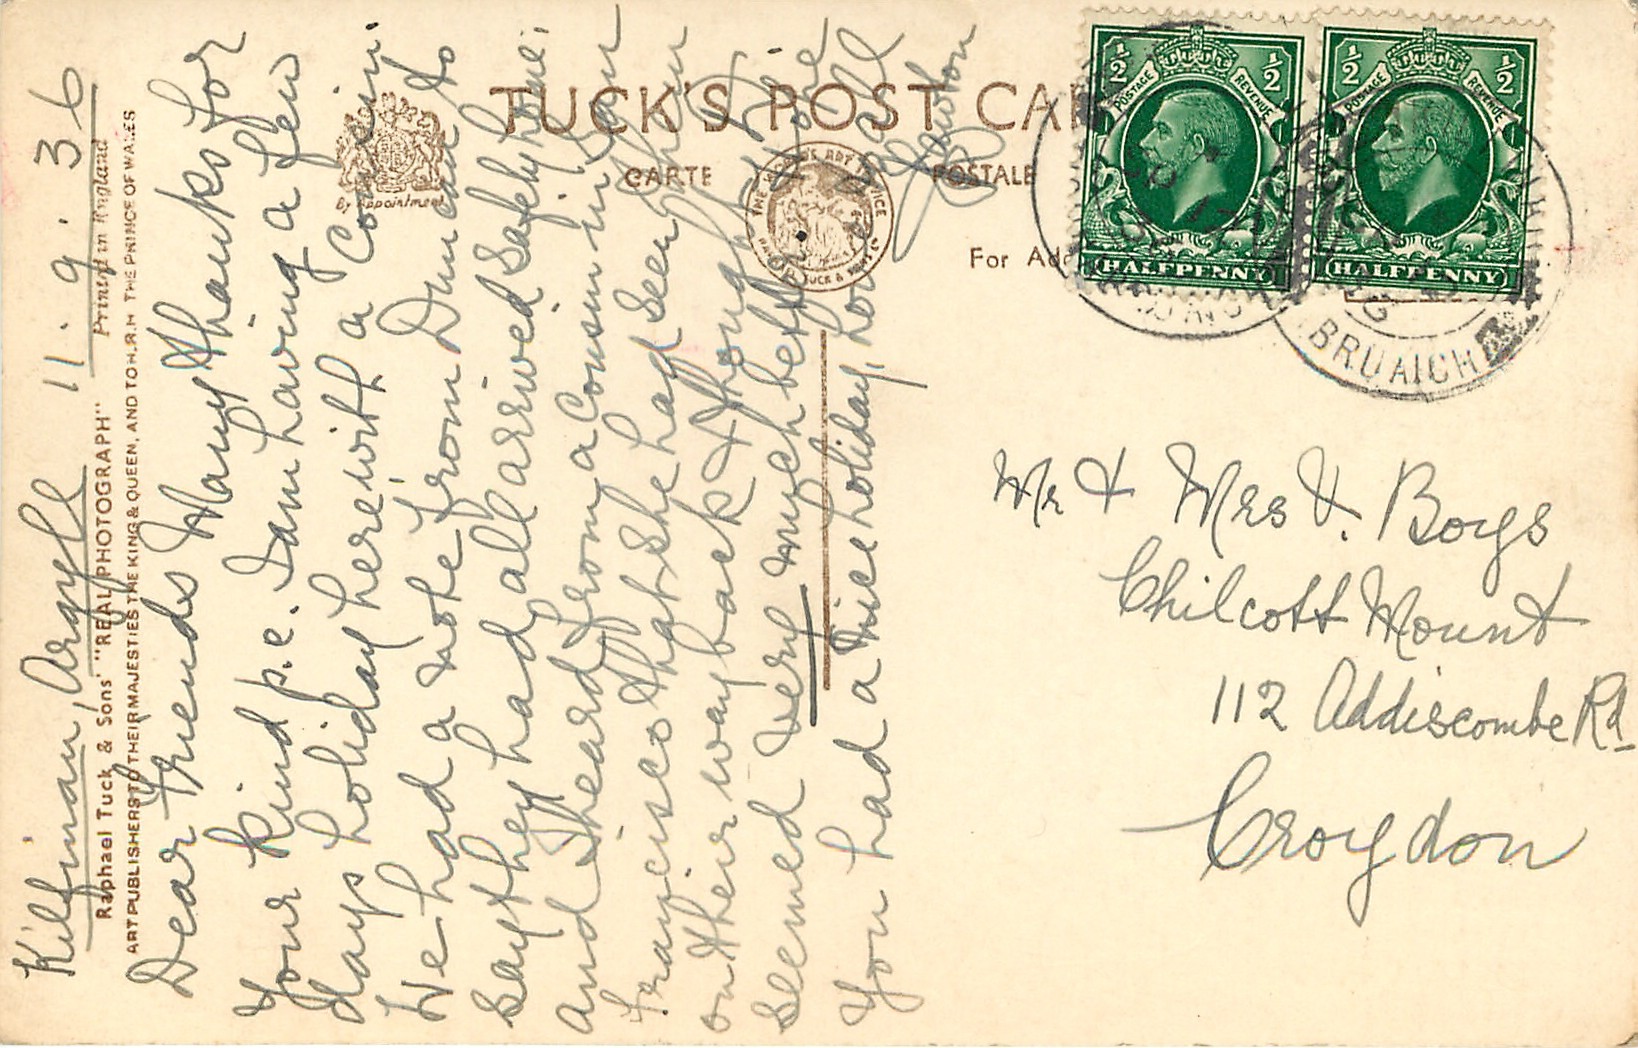 TUCK'S POST CAR
CARTE POSTALE
By Appointment
For Add
Raphael Tuck & Sons' "REAL PHOTOGRAPH" Printed in England
ART PUBLISHERS TO THEIR MAJESTIES THE KING & QUEEN, AND TO H.R.H THE PRINCE OF WALES
Kilfinan, Argyll 11.9.36
Dear Friends Many thanks for
Your kind p.c. I am having a few
days holiday herewith a Cousin.
We had a note from Duncan to
say they had all arrived safely home.
and I heard from a Cousin in San
Francisco that she had seen them
on their way back & thought J
seemed very much better. Hope
You had a nice holiday,
Mr & Mrs V. Boys
Chilcott Mount
112 Addiscombe Rd
Croydon
½ ½
POSTAGE REVENUE
HALFPENNY
½ ½
POSTAGE REVENUE
HALFPENNY
BRUAICH